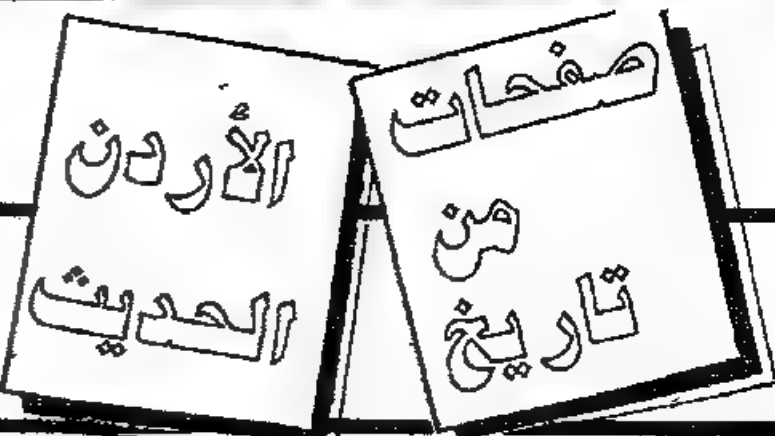 صفحات
من
تاريخ
الأردن
الحديث